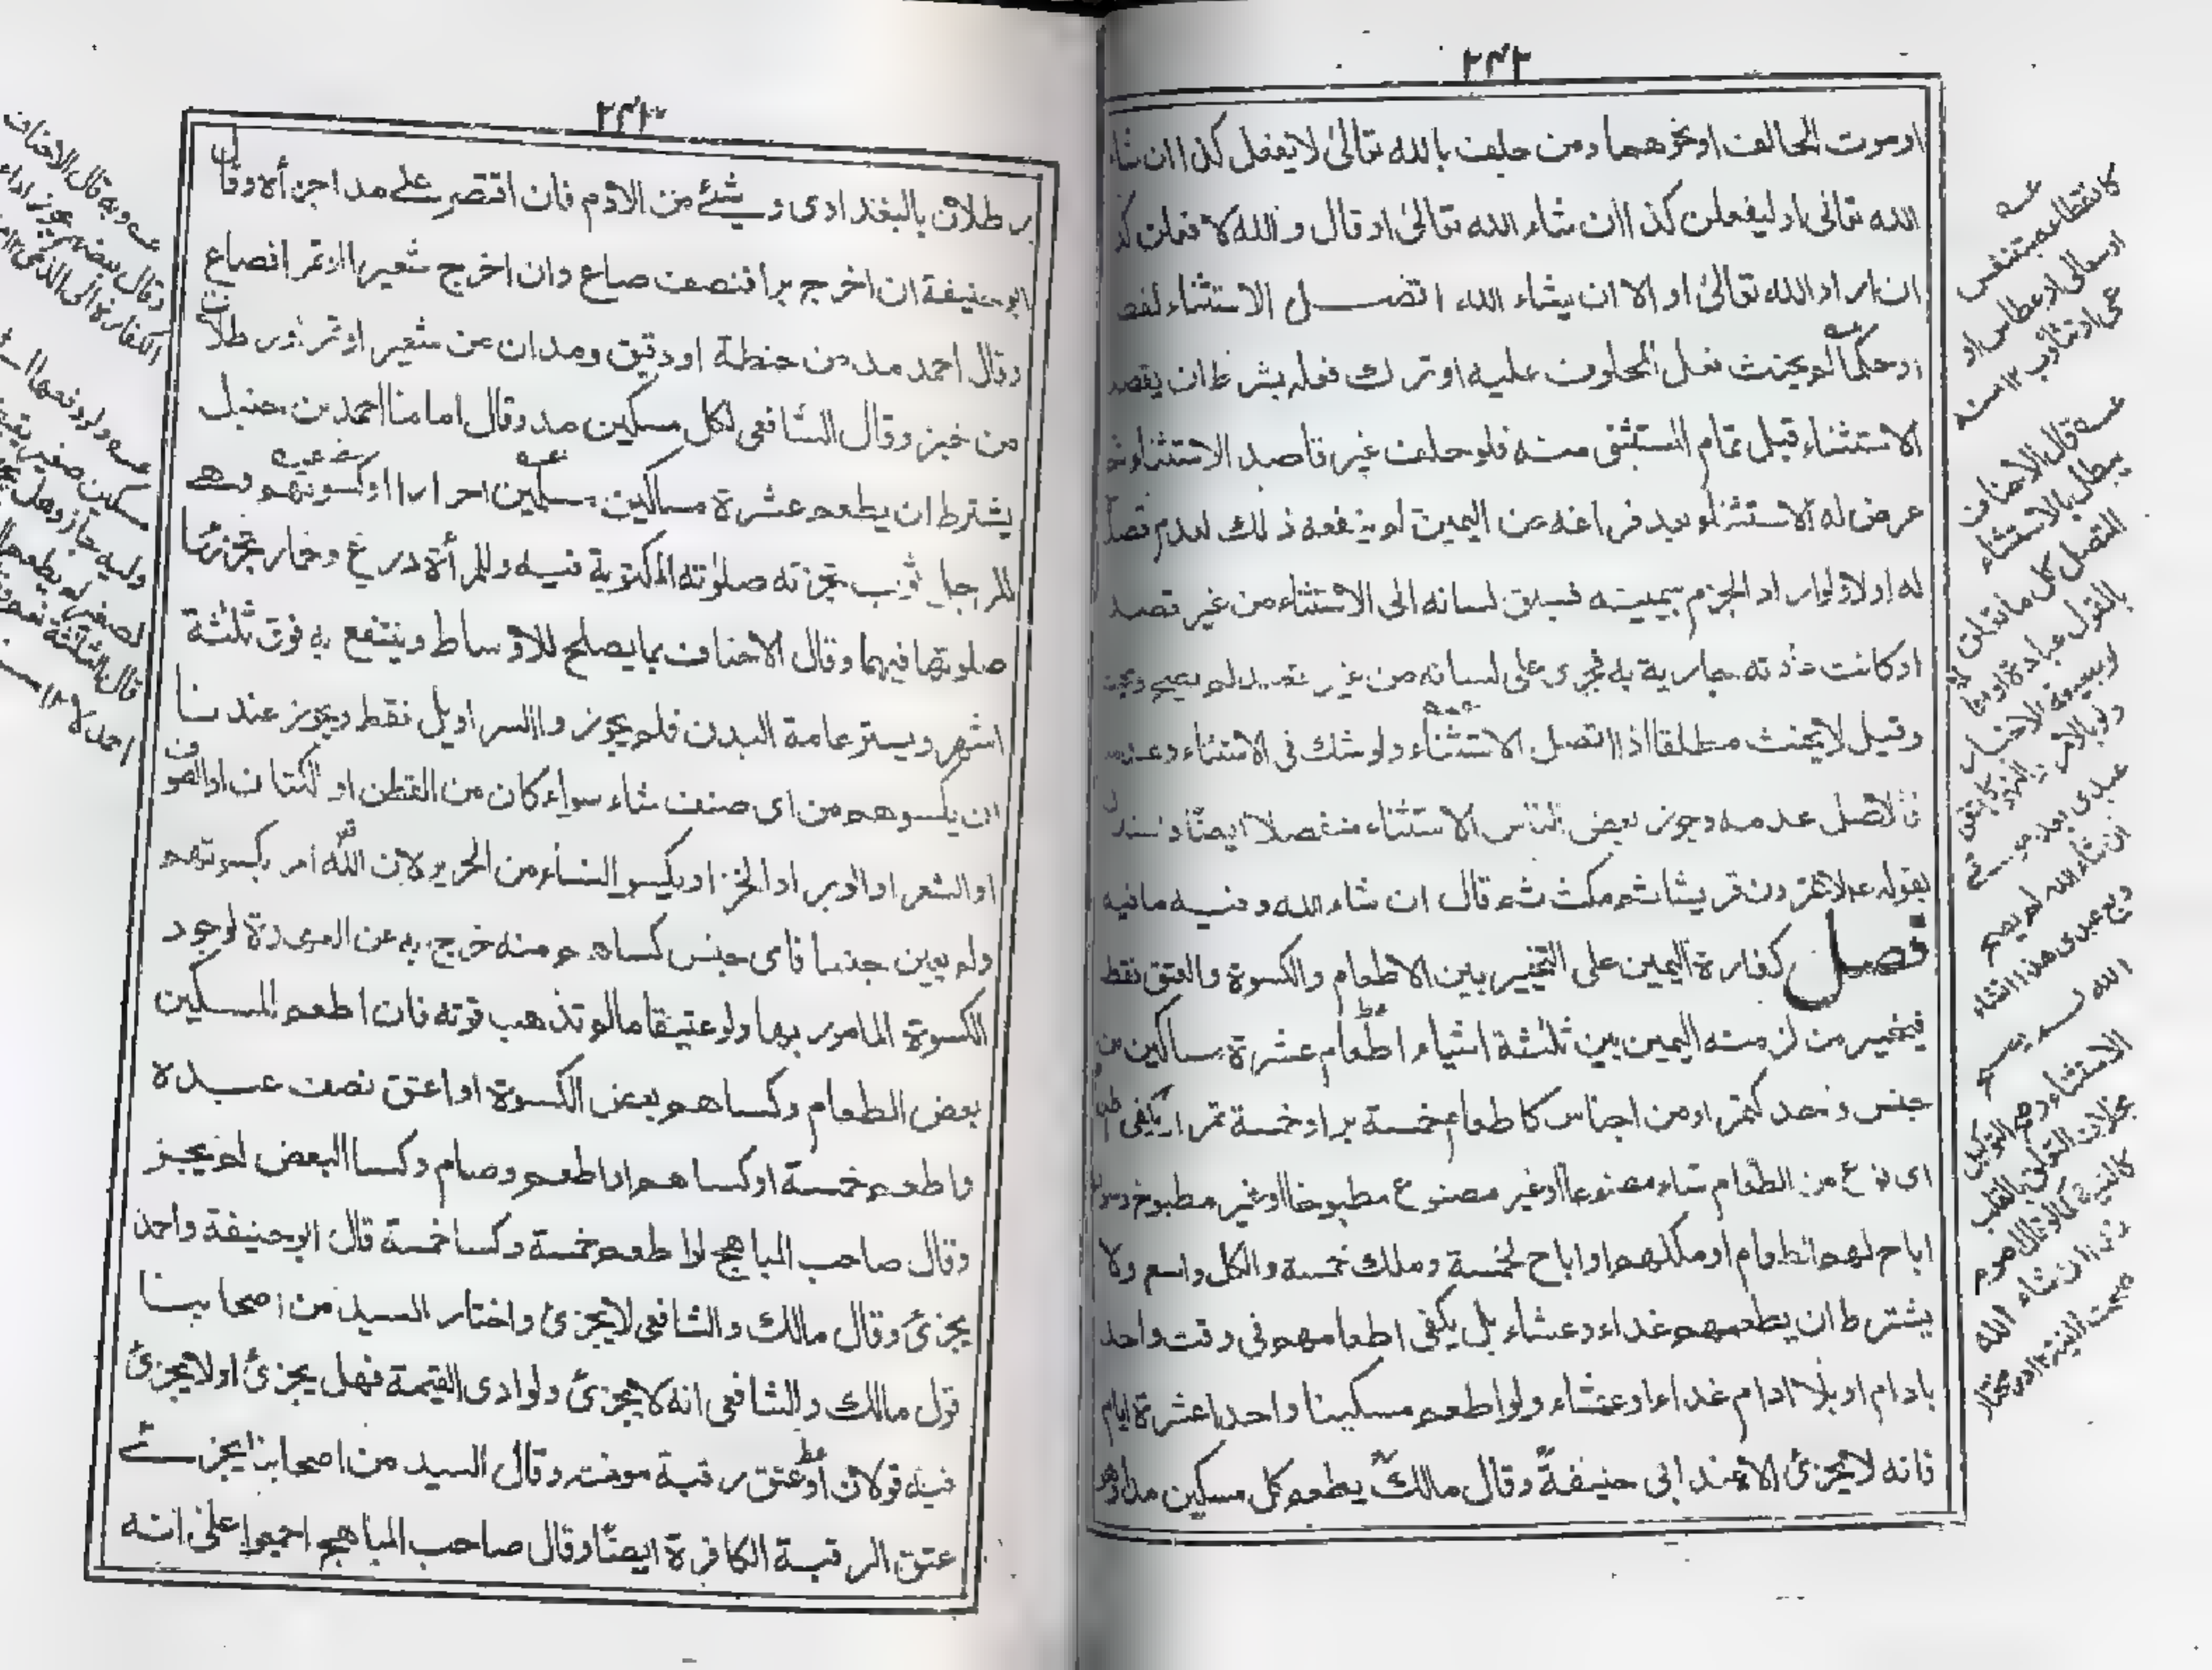 ٢٤٢
او موت الحالف او نحوهما ومن حلف بالله تعالىٰ لا يفعل كذا ان شاء
الله تعالىٰ او ليفعلن كذا ان شاء الله تعالىٰ او قال والله لافعلن كذ
ان اراد الله تعالىٰ او الا ان يشاء الله اتصل الاستثناء لفظا
او حكما لم يحنث فعل المحلوف عليه او ترك فعله بشرط ان يقصد
الاستثناء قبل تمام المستثنى منه فلو حلف غير قاصد الاستثناء ثم
عرض له الاستثناء بعد فراغه من اليمين لم ينفعه ذلك لعدم قصد
له اولا ولو اراد الجزم بيمينه فسبق لسانه الى الاستثناء من غير قصد
او كانت عادته جارية به فجرى على لسانه من غير قصد لم يصح
وقيل لا يحنث مطلقا اذا اتصل الاستثناء ولو شك فى الاستثناء وعدمه
فالاصل عدمه وجوز بعض الناس الاستثناء منفصلا ايضًا
بقوله عم لاغزون قريشا ثم مكث ثم قال ان شاء الله وفيه مافيه
فصل كفارة اليمين على التخيير بين الاطعام والكسوة والعتق فقط
فيخير من لزمته اليمين بين ثلثة اشياء اطعام عشرة مساكين من
جنس واحد كتمر او من اجناس كاطعام خمسة برا وخمسة تمرا ويكفى
اى نوع من الطعام شاء مصنوعا او غير مصنوع مطبوخا او غير مطبوخ وسواء
اباح لهم الطعام او ملكهم او اباح لخمسة وملك خمسة والكل واسع ولا
يشترط ان يطعمهم غداء وعشاء بل يكفى اطعامهم فى وقت واحد
بادام او بلا ادام غداء او عشاء ولو اطعم مسكينا واحدا عشرة ايام
فانه لا يجزئ الا عند ابى حنيفة وقال مالك يطعم كل مسكين مدا وهو
كانقطاعه بتنفس
او سعال او عطاس او
عى او تثاؤب ١٢ منه
عه قال الاحناف
يبطل بالاستثناء
المتصل كل ما تعلق
بالقول عبادة او
ان شاء الله لم يصح
الله
الاستثناء
بخلاف المتعلق بالقلب
كالنية كما لو قال اصوم
غدا ان شاء الله
صحت النية الدر مختار
٢٤٣
رطلان بالبغدادى وشئ من الادم فان اقتصر على مد اجزأه وقال
ابو حنيفة ان اخرج برا فنصف صاع وان اخرج شعيرا او تمرا فصاع
وقال احمد مد من حنطة او دقيق ومدان من شعير او تمر او رطلان
من خبز وقال الشافعى لكل مسكين مد وقال امامنا احمد بن حنبل
يشترط ان يطعم عشرة مساكين مسلمين احرارا او كسوتهم وهى
للرجل ثوب تجزئه صلوته المكتوبة فيه وللمرأة درع وخمار تجزئها
صلوتها فيهما وقال الاحناف بما يصلح للاوساط وينتفع به فوق ثلثة
اشهر ويستر عامة البدن فلم يجوزوا السراويل فقط ويجوز عندنا
ان يكسوهم من اى صنف شاء سواء كان من القطن او الكتان او الصوف
او الشعر او الوبر او الخز او يكسو النساء من الحرير لان الله امر بكسوتهم
ولم يعين جنسا فاى جنس كساهم منه خرج به عن العهدة لوجود
الكسوة المامور بها ولو عتيقا مالم تذهب قوته فان اطعم المسكين
بعض الطعام وكساهم بعض الكسوة او اعتق نصف عبده
واطعم خمسة او كساهم او اطعم وصام وكسا البعض لم يجز
وقال صاحب المباهج لو اطعم خمسة وكسا خمسة قال ابو حنيفة واحمد
يجزئ وقال مالك والشافعى لا يجزئ واختار السيد من اصحابنا
قول مالك والشافعى انه لا يجزئ ولو ادى القيمة فهل يجزئ او لا يجزئ
فيه قولان او عتق رقبة مومنة وقال السيد من اصحابنا يجزئ
عتق الرقبة الكافرة ايضًا وقال صاحب المباهج اجمعوا على انه
عه وبه قال الاحناف
وقال بعضهم يجوز اداء
الكفارة الى الذمى
مسكين صغير
وليه جاز وهل
لصغير لم يطعم
قال الثلثة نعم
احمد لا ١٢